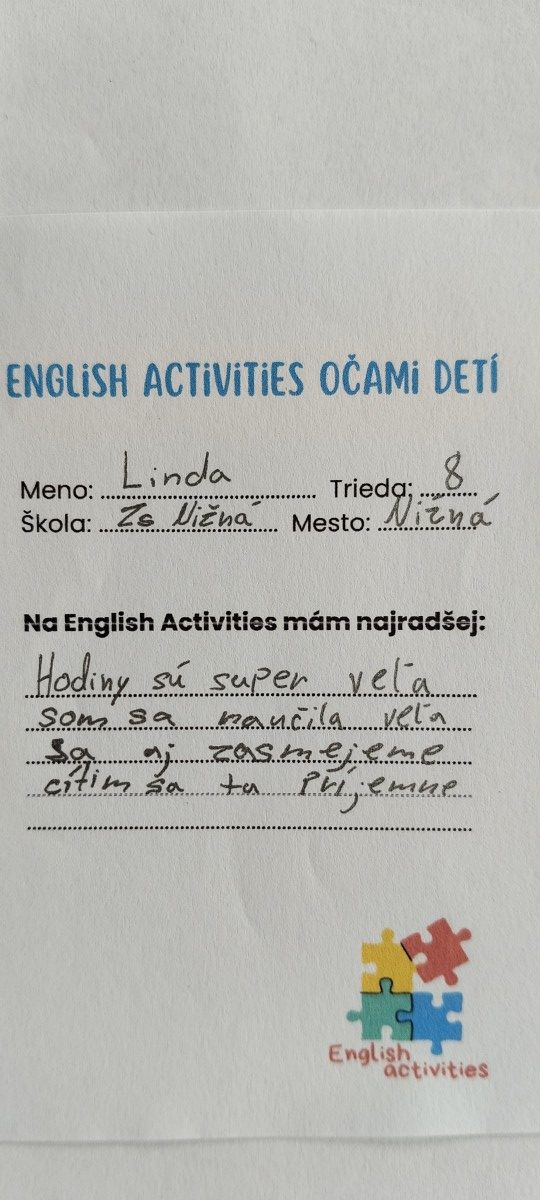 ENGLiSH ACTiViTiES OČAMi DETÍ
Meno: Linda Trieda: 8
Škola: Zs Nižná Mesto: Nižná
Na English Activities mám najradšej:
Hodiny sú super veľa
som sa naučila veľa
sa aj zasmejeme
cítim sa tu príjemne
English
activities